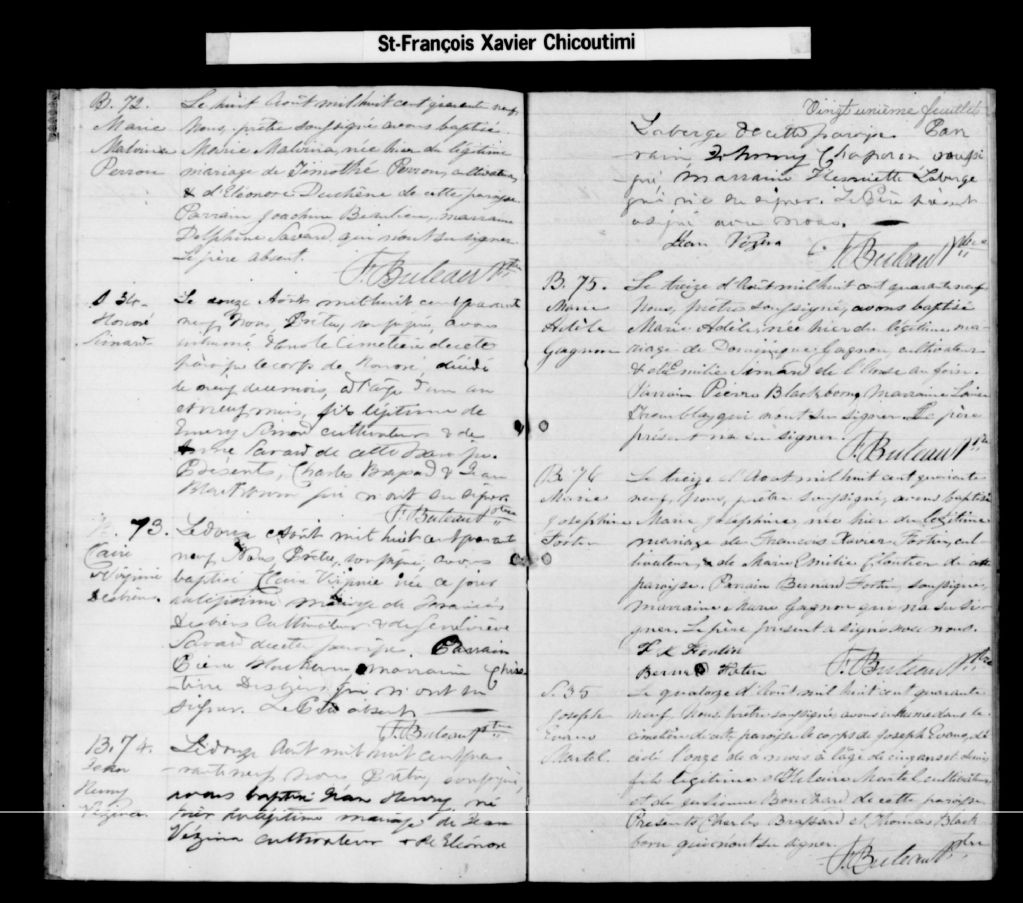 St-François Xavier Chicoutimi
B. 72. Le huit Août mil huit cent quarante neuf
Marie Nous, prêtre soussigné avons baptisé
Malvina Marie Malvina, née hier du légitime
Perron mariage de Timothé Perron, cultivateur
& d'Eléonore Duchêne de cette paroisse
Parrain Joachim Beaulieu, marraine
Delphine Savard qui n'ont su signer
Le père absent.
F. Buteau Ptre
S 34 Le onze Août mil huit cent quarante
Honoré neuf Nous, Prêtre, soussigné, avons
Simard inhumé dans le Cimetière de cette
paroisse le corps de Honoré, décédé
le neuf du mois, à l'âge d'un an
et neuf mois, fils légitime de
Simard cultivateur & de
Savard de cette paroisse.
Présents, Charles Brassard & Jean
Blackburn qui n'ont su signer
F. Buteau Ptre
73. Le douze Août mil huit cent quarante
Claire neuf Nous Prêtre, soussigné, avons
Virginie baptisé Claire Virginie née ce jour
Desbiens du légitime mariage de François
Desbiens Cultivateur & de Geneviève
Savard de cette paroisse. Parrain
Pierre Blackburn marraine Chris-
-tine Desbiens qui n'ont su
signer. Le Père absent
F. Buteau Ptre
B. 74. Le douze Août mil huit cent qua
Jean -rante neuf Nous Prêtre, soussigné,
Henry avons baptisé Jean Henry né
Vézina hier du légitime mariage de Jean
Vézina cultivateur & de Eléonore
Vingt unième feuillet
Laberge de cette paroisse Par
rain Johnny Chaperon soussi
gné marraine Henriette Laberge
qui n'a su signer. Le Père présent
a signé avec nous.
Jean Vézina
F. Buteau Ptre
B. 75. Le treize d'Août mil huit cent quarante neuf
Marie Nous, prêtre soussigné, avons baptisé
Adèle Marie Adèle, née hier du légitime ma-
Gagnon riage de Dominique Gagnon, cultivateur
& d'Emilie Simard de l'Anse au foin.
Parrain Pierre Blackburn, Marraine
Tremblay qui n'ont su signer. Le père
présent n'a su signer.
F. Buteau Ptre
B. 76 Le treize d'Août mil huit cent quarante
Marie neuf, Nous, prêtre soussigné, avons baptisé
Josephine Marie Josephine, née hier du légitime
Fortin mariage de Francois Xavier Fortin, cul-
tivateur, & de Marie Emilie Cloutier de cette
paroisse. Parrain Bernard Fortin, soussigné,
marraine Marie Gagnon qui n'a su si-
gner. Le père présent a signé avec nous.
F X Fortin
F. Buteau Ptre
S. 35 Le quatorze d'Août mil huit cent quarante
Joseph neuf, Nous, prêtre soussigné avons inhumé dans le
cimetière de cette paroisse le corps de Joseph, dé
Martel. cédé l'onze de ce mois à l'âge de cinq ans et demi
fils légitime d'Hilaire Martel cultivateur
et de Julienne Bouchard de cette paroisse
Présents Charles Brassard et Thomas Black
burn qui n'ont su signer.
F. Buteau Ptre